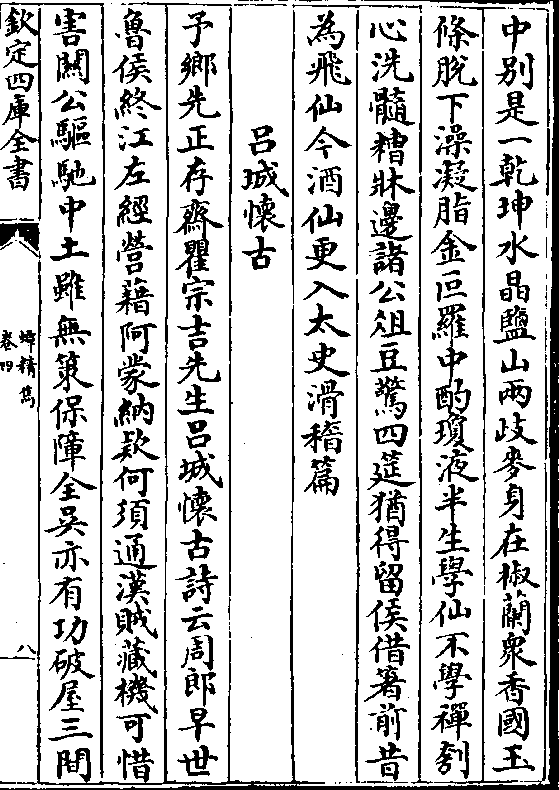 中别是一乾坤水晶鹽山兩歧麥身在椒蘭衆香國玉
條脫下澡凝脂金叵羅中酌瓊液半生學仙不學禪刳
心洗髓糟牀邊諸公俎豆驚四筵猶得留侯借箸前昔
為飛仙今酒仙更入太史滑稽篇
吕城懷古
予鄉先正存齋瞿宗吉先生吕城懷古詩云周郎早世
魯侯終江左經營藉阿蒙納欵何須通漢賊藏機可惜
害關公驅馳中土雖無策保障全吳亦有功破屋三間
欽定四庫全書
蟫精雋
卷四
八